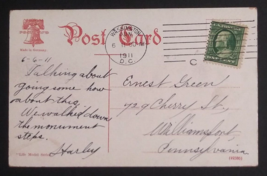 Post Card
1911
D.C.
6-6-11
Talking about
going some how
about this
We walked down
the monument
steps
Harley
Ernest Green
729 Cherry St,
Williamsport
Pennsylvania